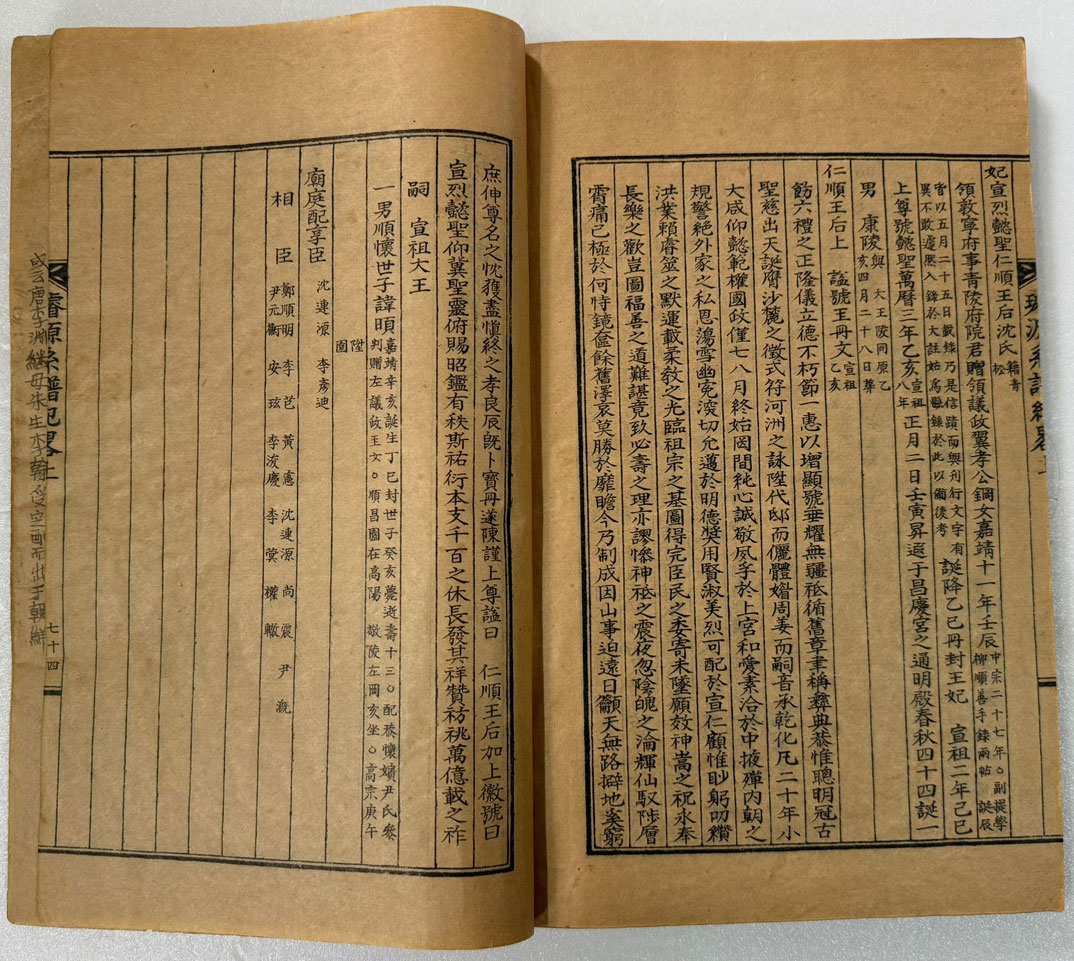 妃宣烈懿聖仁順王后沈氏籍青松
領敦寧府事青陵府院君贈領議政翼孝公鋼女嘉靖十一年壬辰中宗二十七年○副提學柳順善手錄兩帖 誕辰
皆以五月二十五日載錄乃是信蹟而與刊行文字有異不敢遽然入錄於大註始爲懸錄於此以備後考 誕降乙巳冊封王妃 宣祖二年己巳
上尊號懿聖萬曆三年乙亥宣祖八年正月二日壬寅昇遐于昌慶宮之通明殿春秋四十四誕一
男 康陵與 大王陵同原乙亥四月二十八日葬
仁順王后上 諡號玉冊文宣祖乙亥
飭六禮之正隆儀立德不朽節一惠以增顯號垂耀無疆祗循舊章聿稱彝典恭惟聰明冠古
聖慈出天誕膺沙麓之徵式符河洲之詠陞代邸而儷體媲周姜而嗣音承乾化凡二十年小
大咸仰懿範權國政僅七八月終始罔間純心誠敬夙孚於上宮和愛素洽於中掖殫內朝之
規警絶外家之私恩蕩雪幽寃深切允邁於明德奬用賢淑美烈可配於宣仁顧惟眇躬叨纘
洪業賴睿筮之默運載柔敎之光臨祖宗之基圖得完臣民之委寄未墜願效神嵩之祝永奉
長樂之歡豈圖福善之道難諶竟致必壽之理亦謬慘神祗之震夜忽陰魄之淪輝仙馭陟層
霄痛已極於何恃鏡奩餘舊澤哀莫勝於靡瞻今乃制成因山事迫遠日籲天無路擗地奚窮
璿源系譜紀畧
庶伸尊名之忱獲盡愼終之孝良辰旣卜寶冊遂陳謹上尊謚曰 仁順王后加上徽號曰
宣烈懿聖仰冀聖靈俯賜昭鑑有秩斯祐衍本支千百之休長發其祥贊祊祧萬億載之祚
嗣 宣祖大王
一男順懷世子諱暊嘉靖辛亥誕生丁巳封世子癸亥薨逝壽十三○配恭懷嬪尹氏參判贈左議政玉女○順昌園在高陽 敬陵左岡亥坐○高宗庚午
陞園
廟庭配享臣 沈連源 李彥迪
相臣 鄭順明 李芑 黃憲 沈連源 尚震 尹漑
尹元衡 安玹 李浚慶 李蓂 權轍
璿源系譜紀畧
七十四